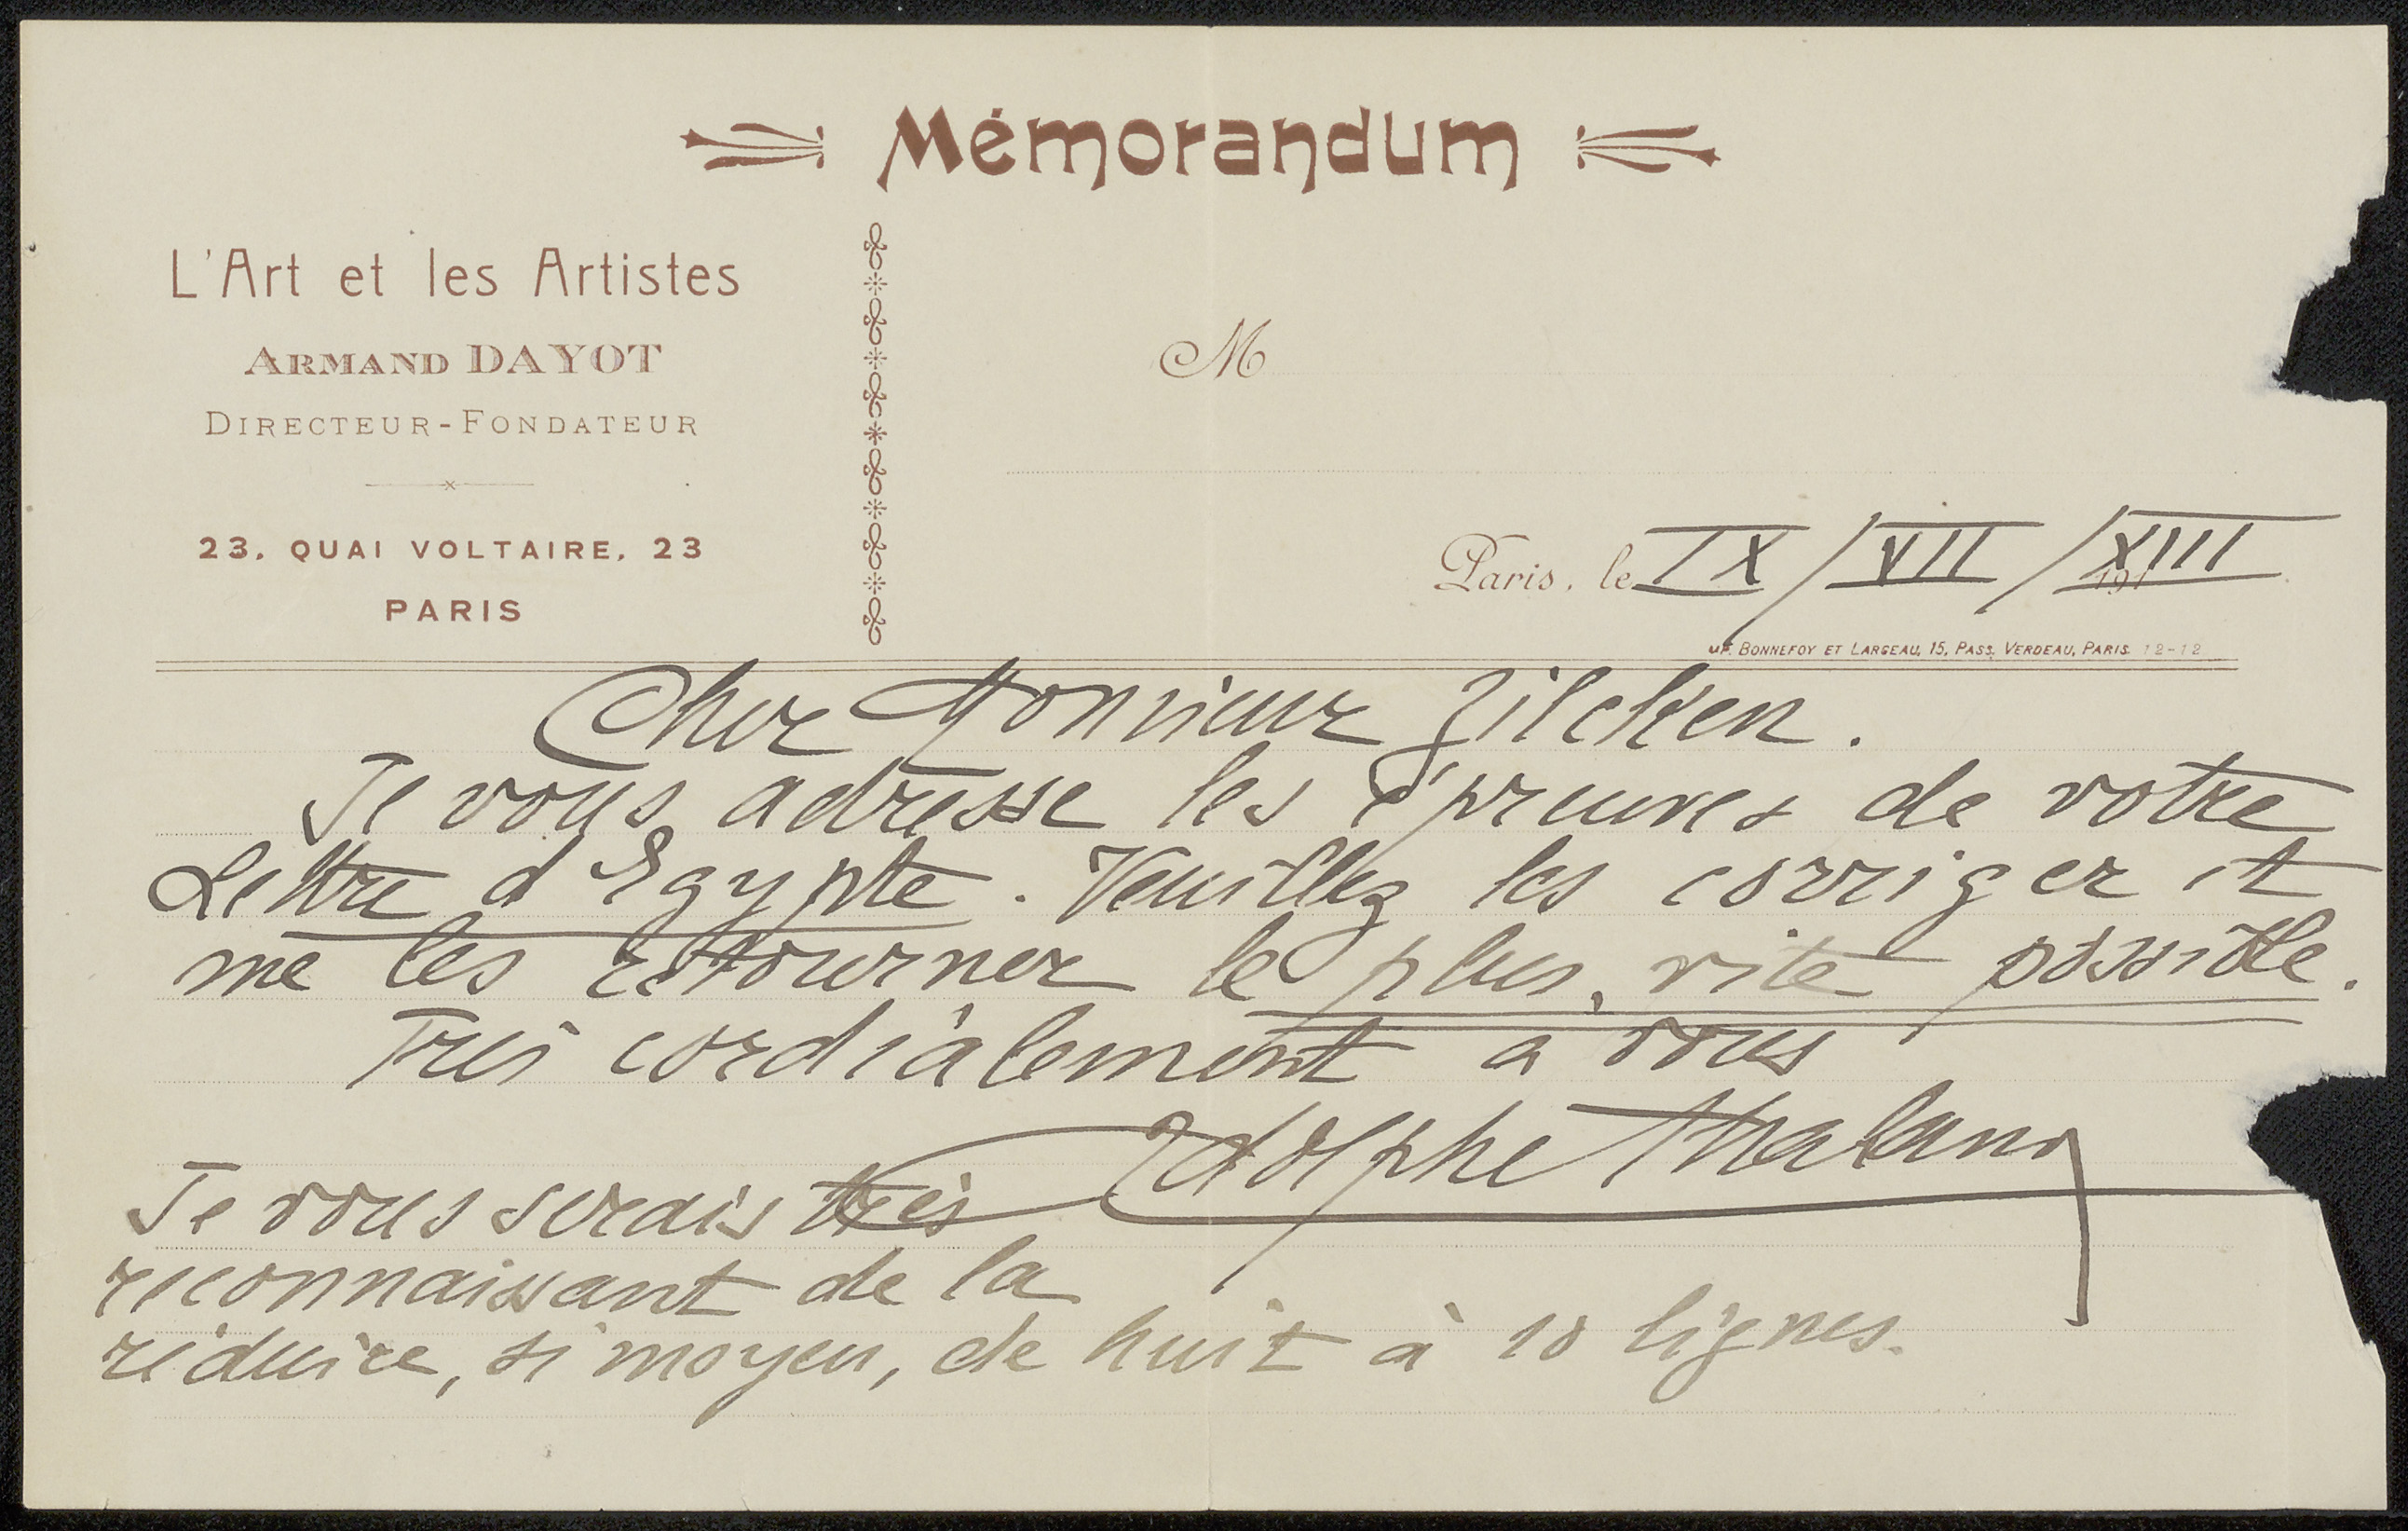 Mémorandum
L'Art et les Artistes
ARMAND DAYOT
DIRECTEUR-FONDATEUR
23, QUAI VOLTAIRE, 23
PARIS
M
Paris, le IX/VII/XIII 191
IMP. BONNEFOY ET LARGEAU, 15, PASS. VERDEAU, PARIS 12-12
Cher Monsieur Zilcken.
Je vous adresse les épreuves de votre
Lettre d'Egypte. Veuillez les corriger et
me les retourner le plus vite possible.
Très cordialement à vous
Adolphe Thalasso
Je vous serais très
reconnaissant de la
réduire, si moyen, de huit à 10 lignes.